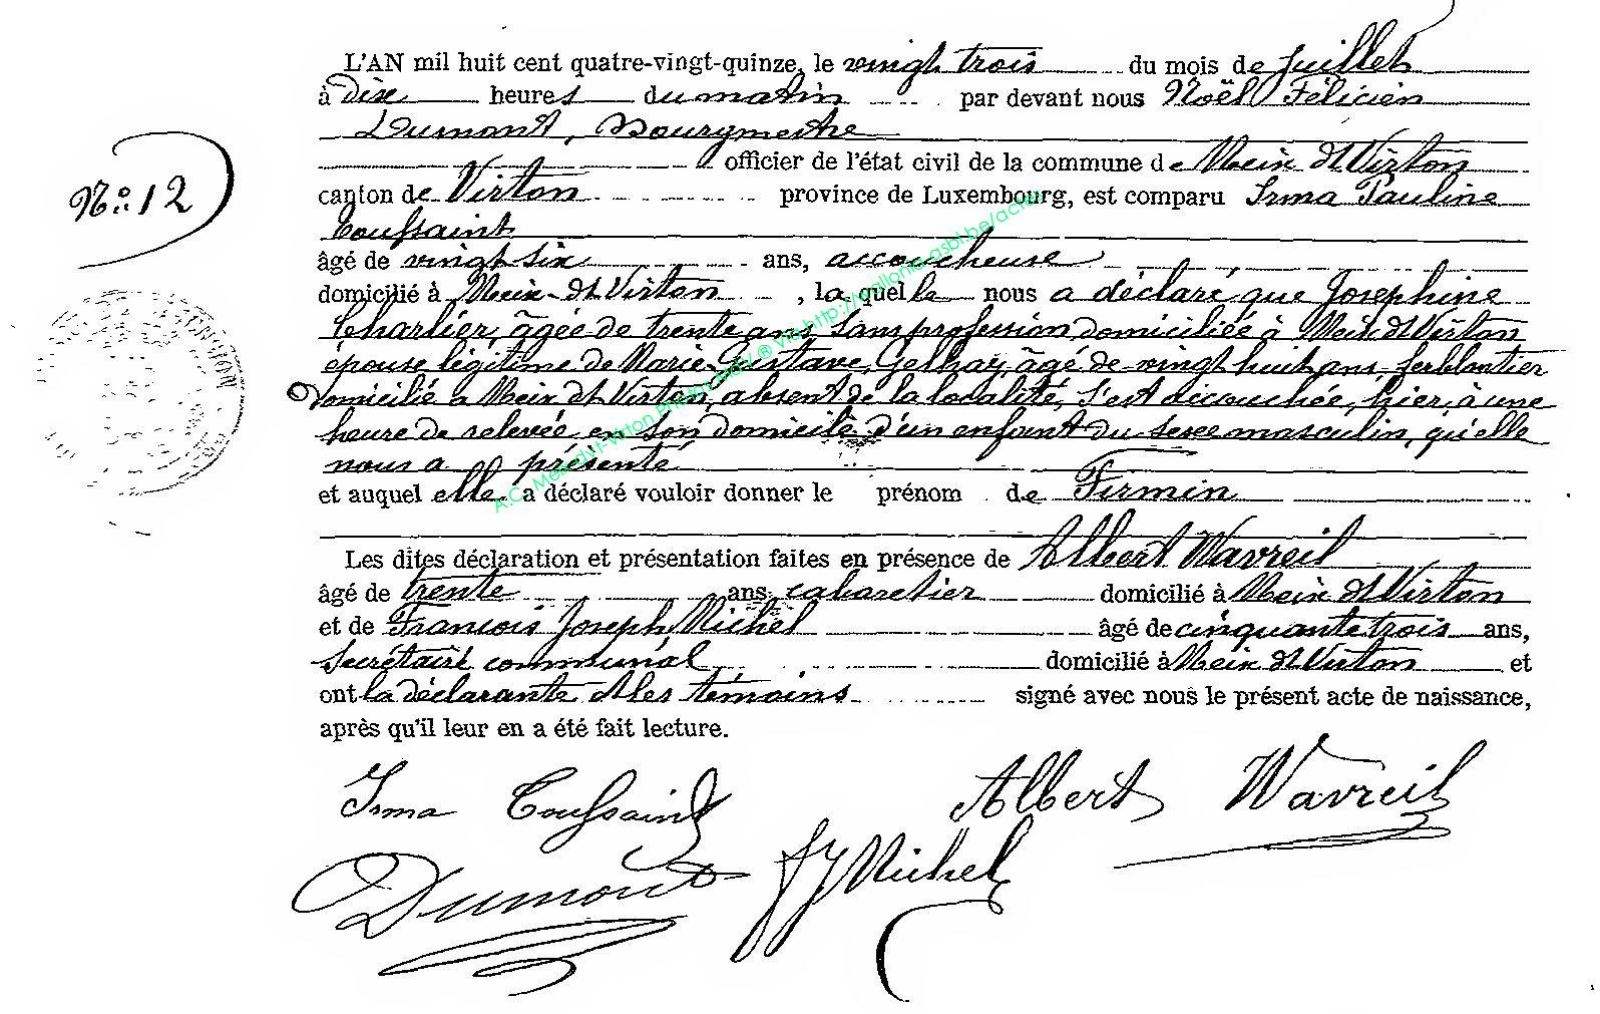 L'AN mil huit cent quatre-vingt-quinze, le vingt trois du mois de Juillet
à dix heures du matin par devant nous Noël Félicien
Dumont, Bourgmestre
officier de l'état civil de la commune de Meix dt Virton
N° 12
canton de Virton province de Luxembourg, est comparu Irma Pauline
Toussaint
âgé de vingt six ans, accoucheuse
domicilié à Meix-dt Virton, la quelle nous a déclaré que Josephine
Charlier, âgée de trente ans sans profession domiciliée à Meix dt Virton
épouse légitime de Marie Gustave Gelhay, âgé de vingt huit ans, ferblantier
domicilié à Meix dt Virton, absent de la localité, s'est accouchée, hier, à une
heure de relevée en son domicile d'un enfant du sexe masculin, qu'elle
nous a présenté
et auquel elle a déclaré vouloir donner le prénom de Firmin
Les dites déclaration et présentation faites en présence de Albert Wavreil
âgé de trente ans cabaretier domicilié à Meix dt Virton
et de François Joseph Michel âgé de cinquante trois ans,
secrétaire communal domicilié à Meix dt Virton et
ont la déclarante et les témoins signé avec nous le présent acte de naissance,
après qu'il leur en a été fait lecture.
Irma Toussaint Albert Wavreil
Dumont FJ Michel